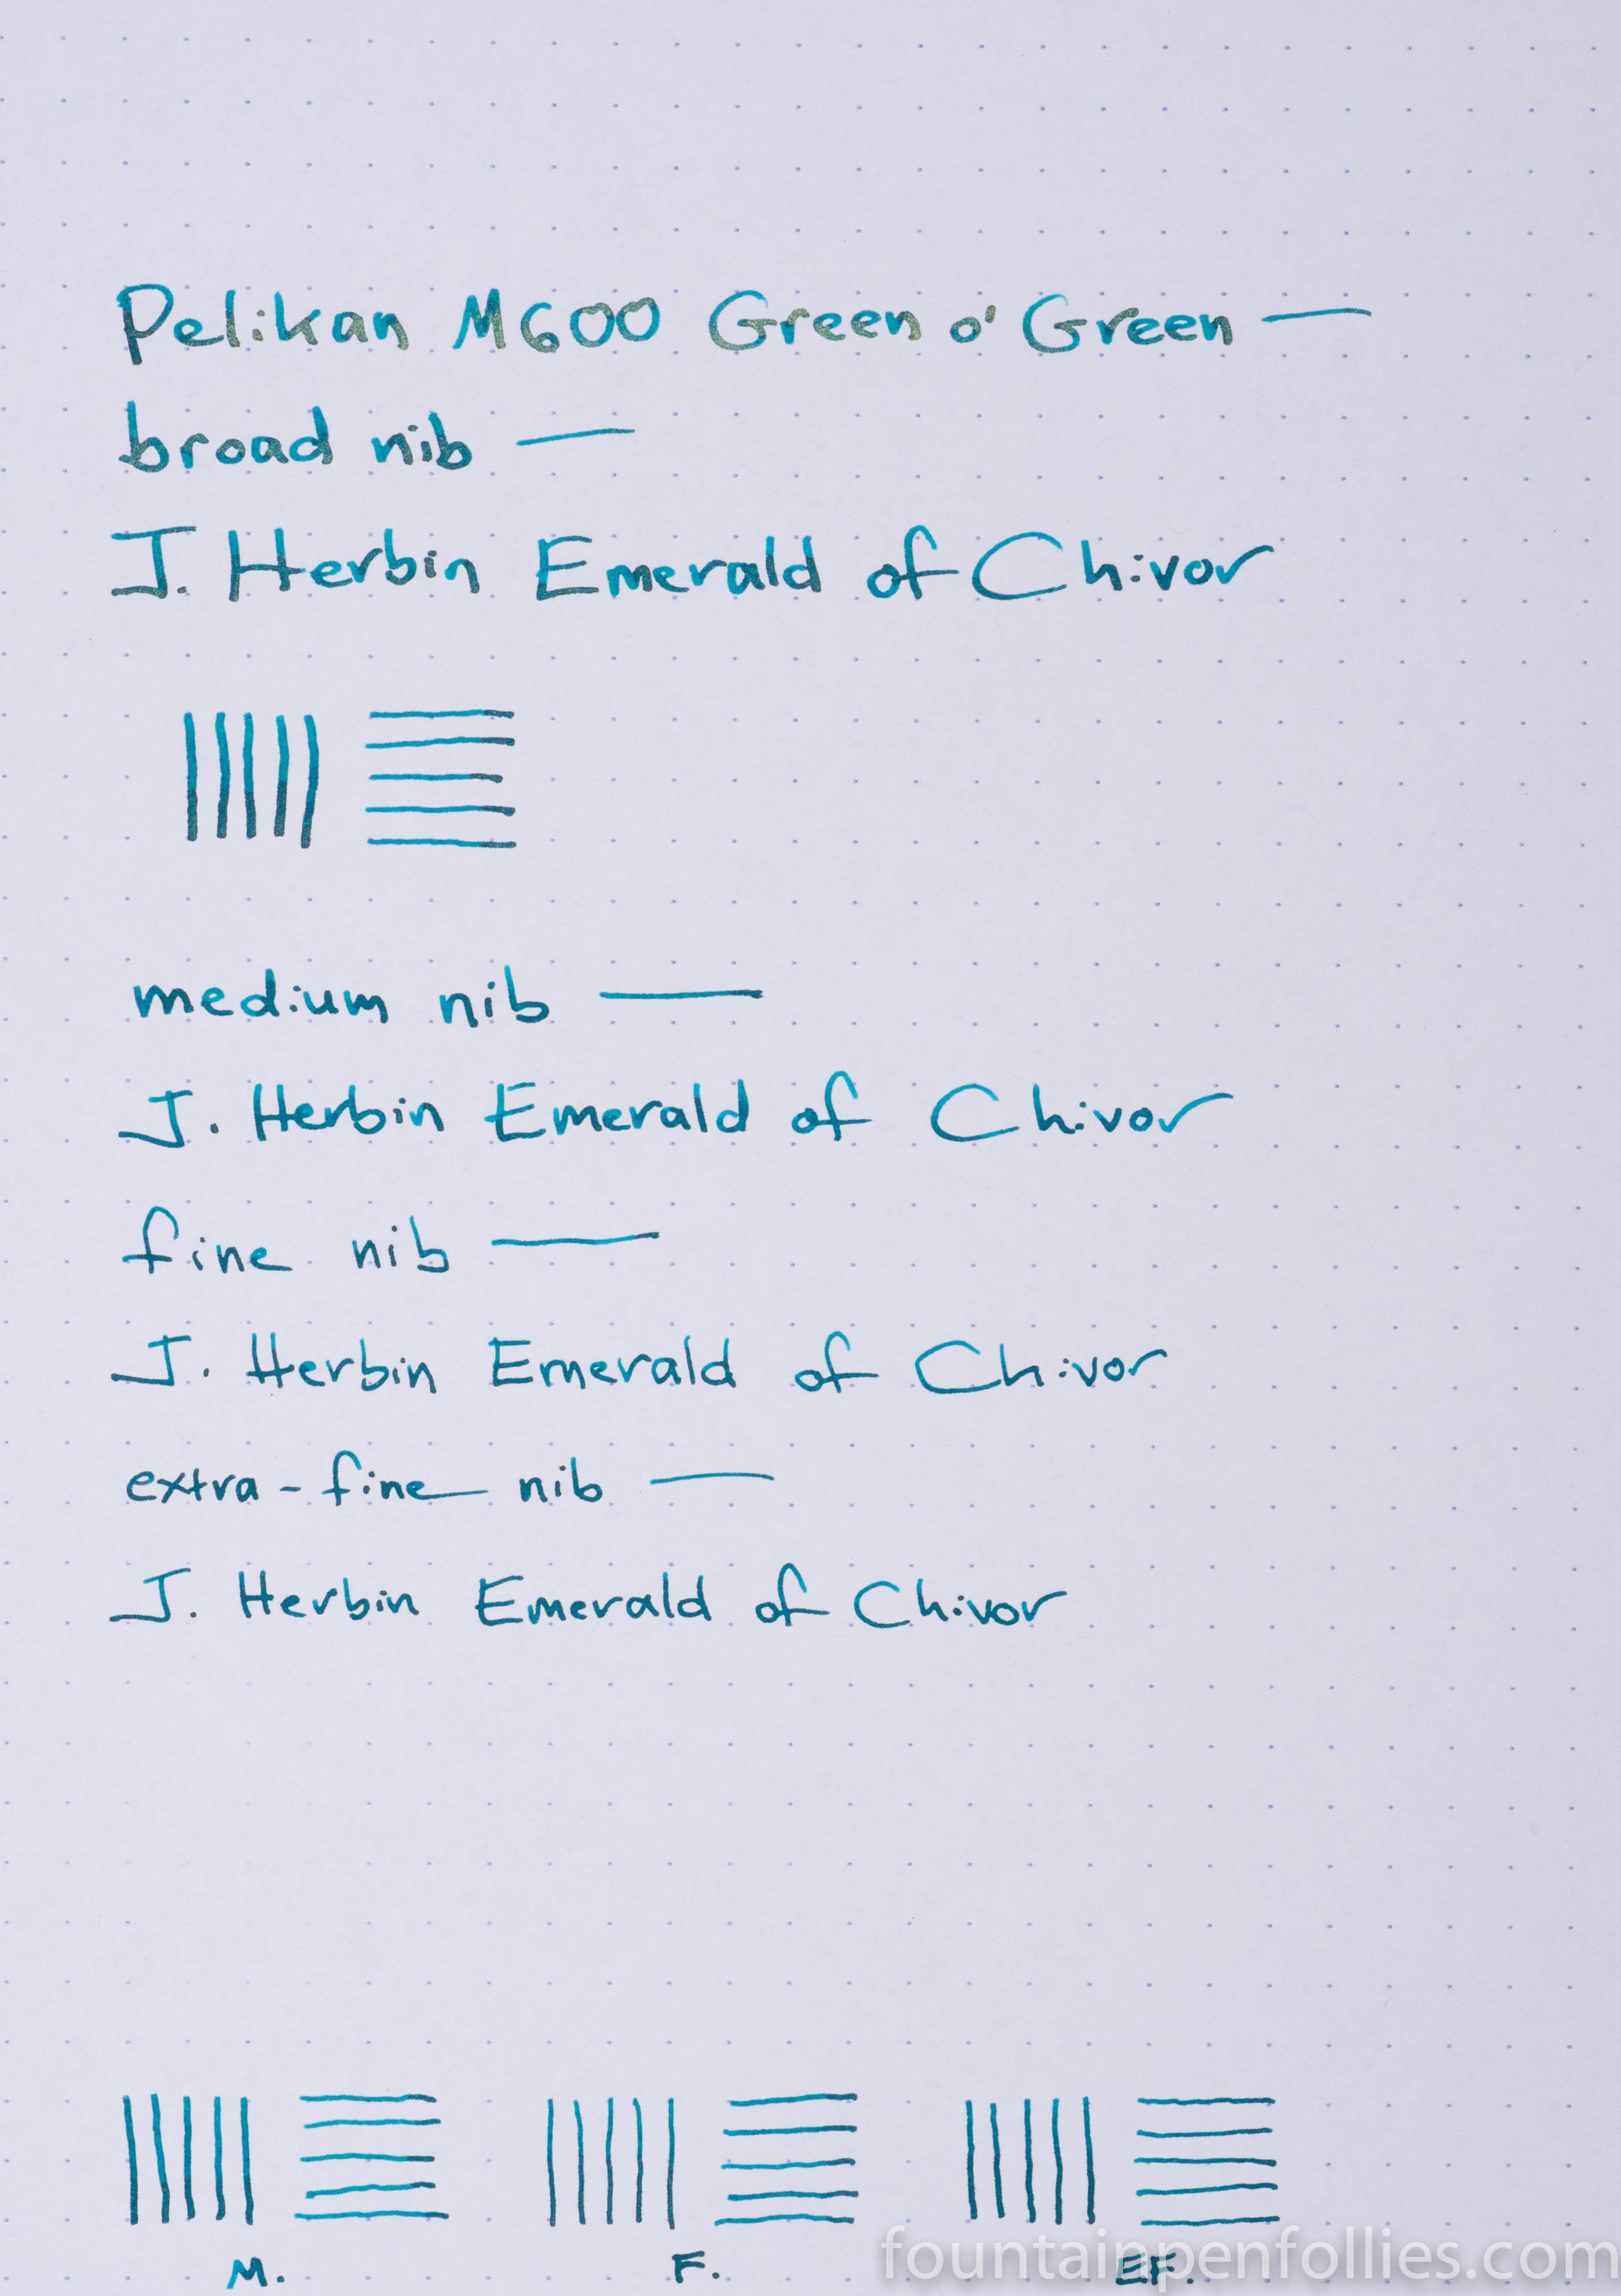 Pelikan M600 Green o' Green —
broad nib —
J. Herbin Emerald of Chivor
medium nib —
J. Herbin Emerald of Chivor
fine nib —
J. Herbin Emerald of Chivor
extra-fine nib —
J. Herbin Emerald of Chivor
M. F. EF.
fountainpenfollies.com